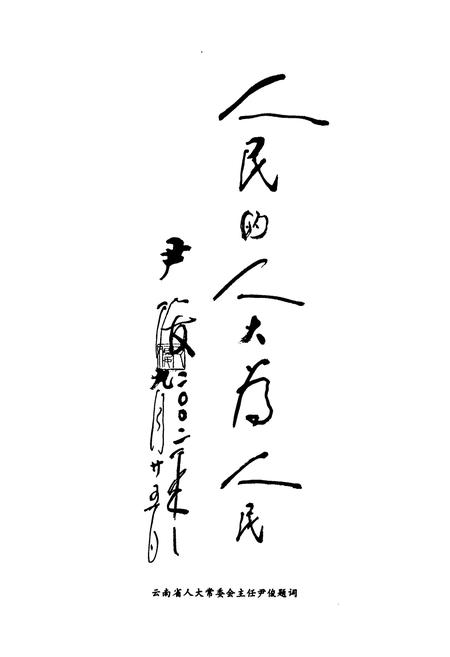 人民的人大为人民
尹俊
二〇〇二年
九月廿五日
云南省人大常委会主任尹俊题词